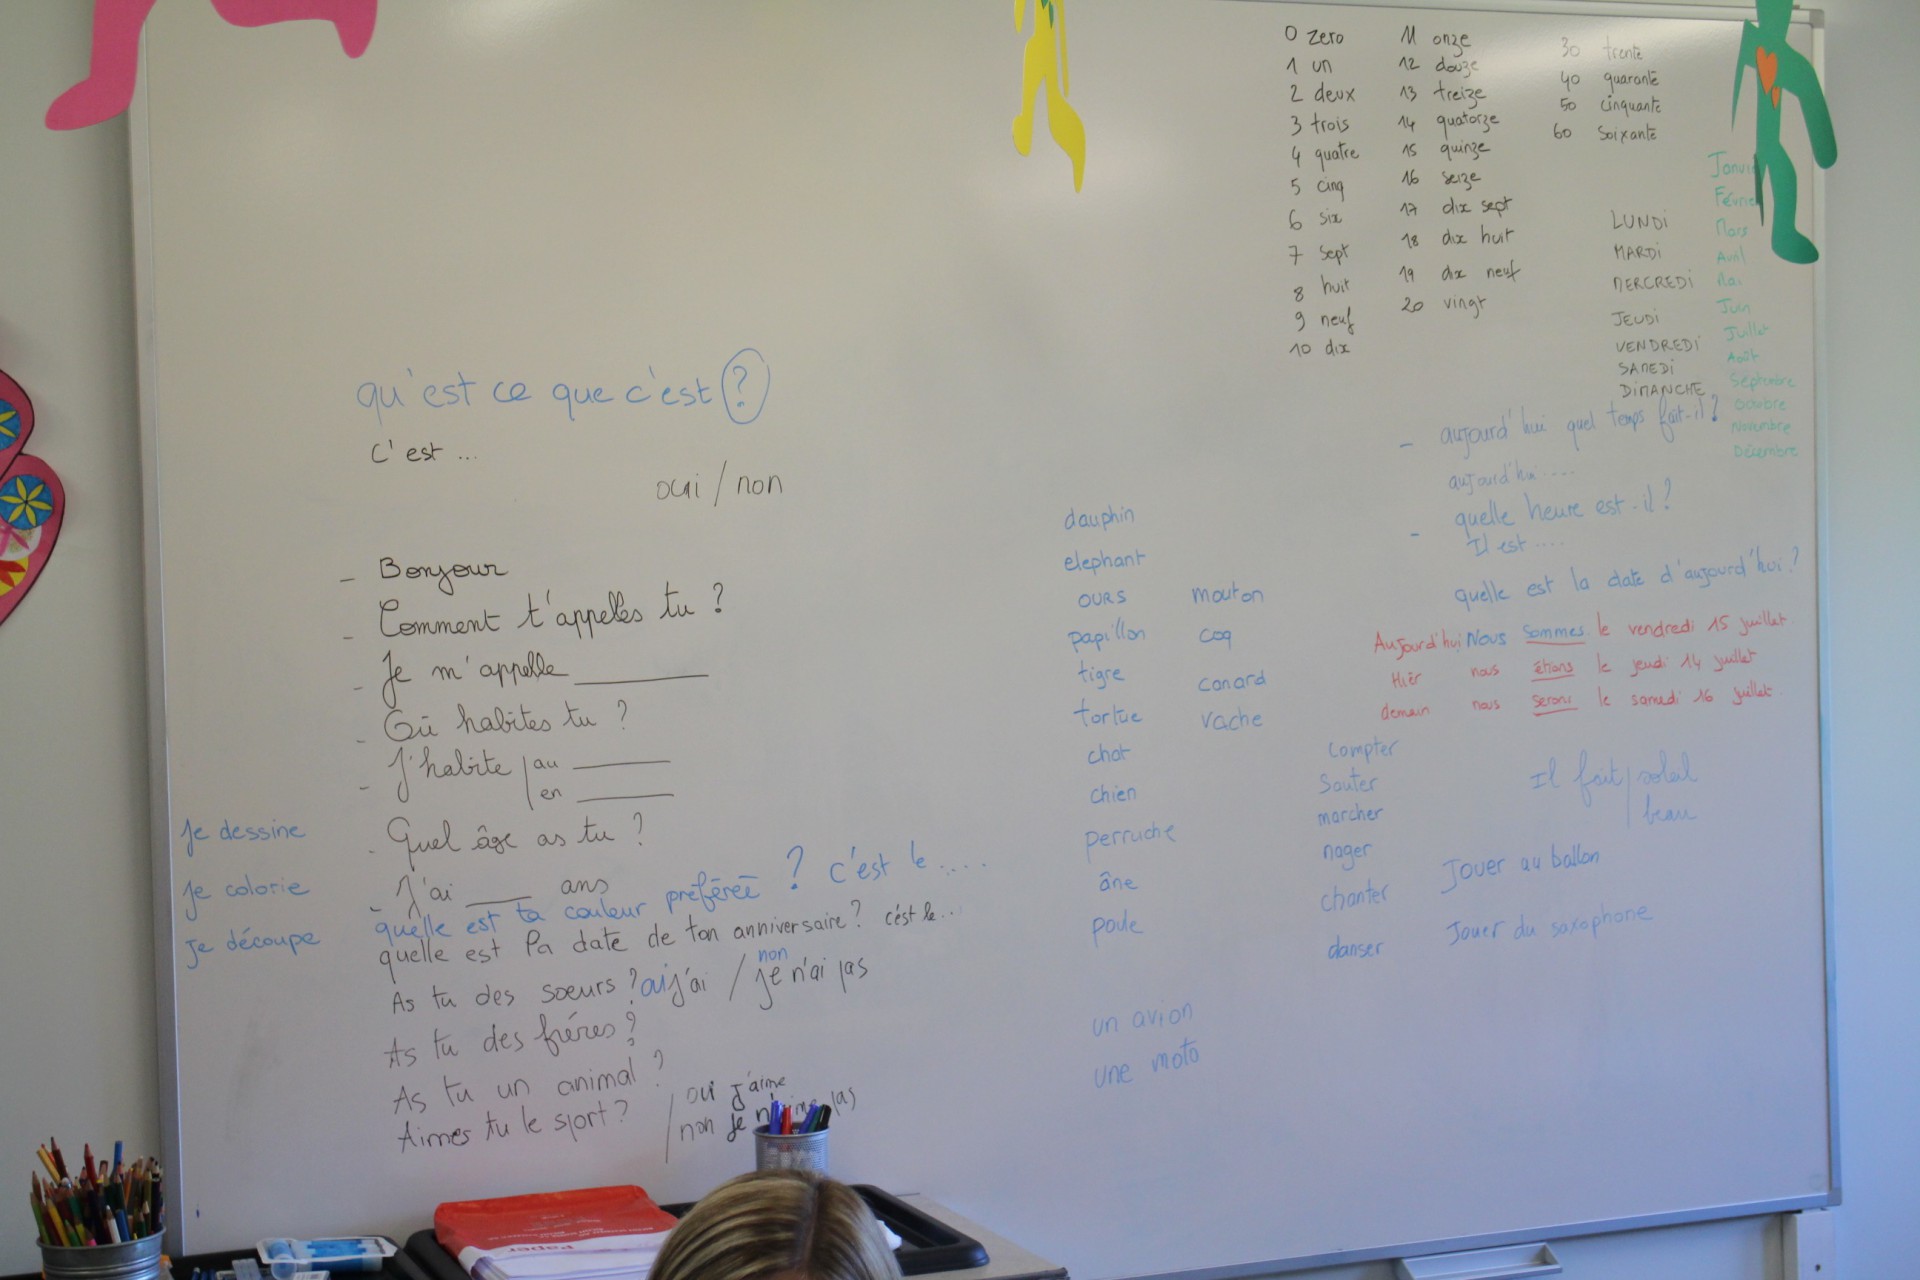 0 zero
1 un
2 deux
3 trois
4 quatre
5 cinq
6 six
7 sept
8 huit
9 neuf
10 dix
11 onze
12 douze
13 treize
14 quatorze
15 quinze
16 seize
17 dix sept
18 dix huit
19 dix neuf
20 vingt
30 trente
40 quarante
50 cinquante
60 soixante
LUNDI
MARDI
MERCREDI
JEUDI
VENDREDI
SAMEDI
DIMANCHE
Mars
Avril
Mai
Juin
Juillet
Août
Septembre
Octobre
Novembre
Décembre
qu'est ce que c'est ?
c'est ...
oui / non
- Bonjour
- Comment t'appelles tu ?
- Je m'appelle
- Où habites tu ?
- J'habite au
en
- Quel âge as tu ?
- J'ai ans
quelle est ta couleur préféreé ? c'est le ....
quelle est la date de ton anniversaire ? c'est le ...
As tu des soeurs ? oui j'ai / non je n'ai pas
As tu des fréres ?
As tu un animal ?
Aimes tu le sport ? oui j'aime
non je pas
Je dessine
Je colorie
Je découpe
dauphin
elephant
ours
papillon
tigre
tortue
chat
chien
perruche
âne
poule
mouton
coq
canard
vache
un avion
une moto
- aujourd'hui quel temps fait-il ?
aujourd'hui ....
- quelle heure est-il ?
Il est ....
quelle est la date d'aujourd'hui ?
Aujourd'hui Nous sommes le vendredi 15 juillet.
Hier nous étions le jeudi 14 juillet
demain nous serons le samedi 16 juillet.
compter
sauter
marcher
nager
chanter
danser
Il fait soleil
beau
Jouer au ballon
Jouer du saxophone
paper